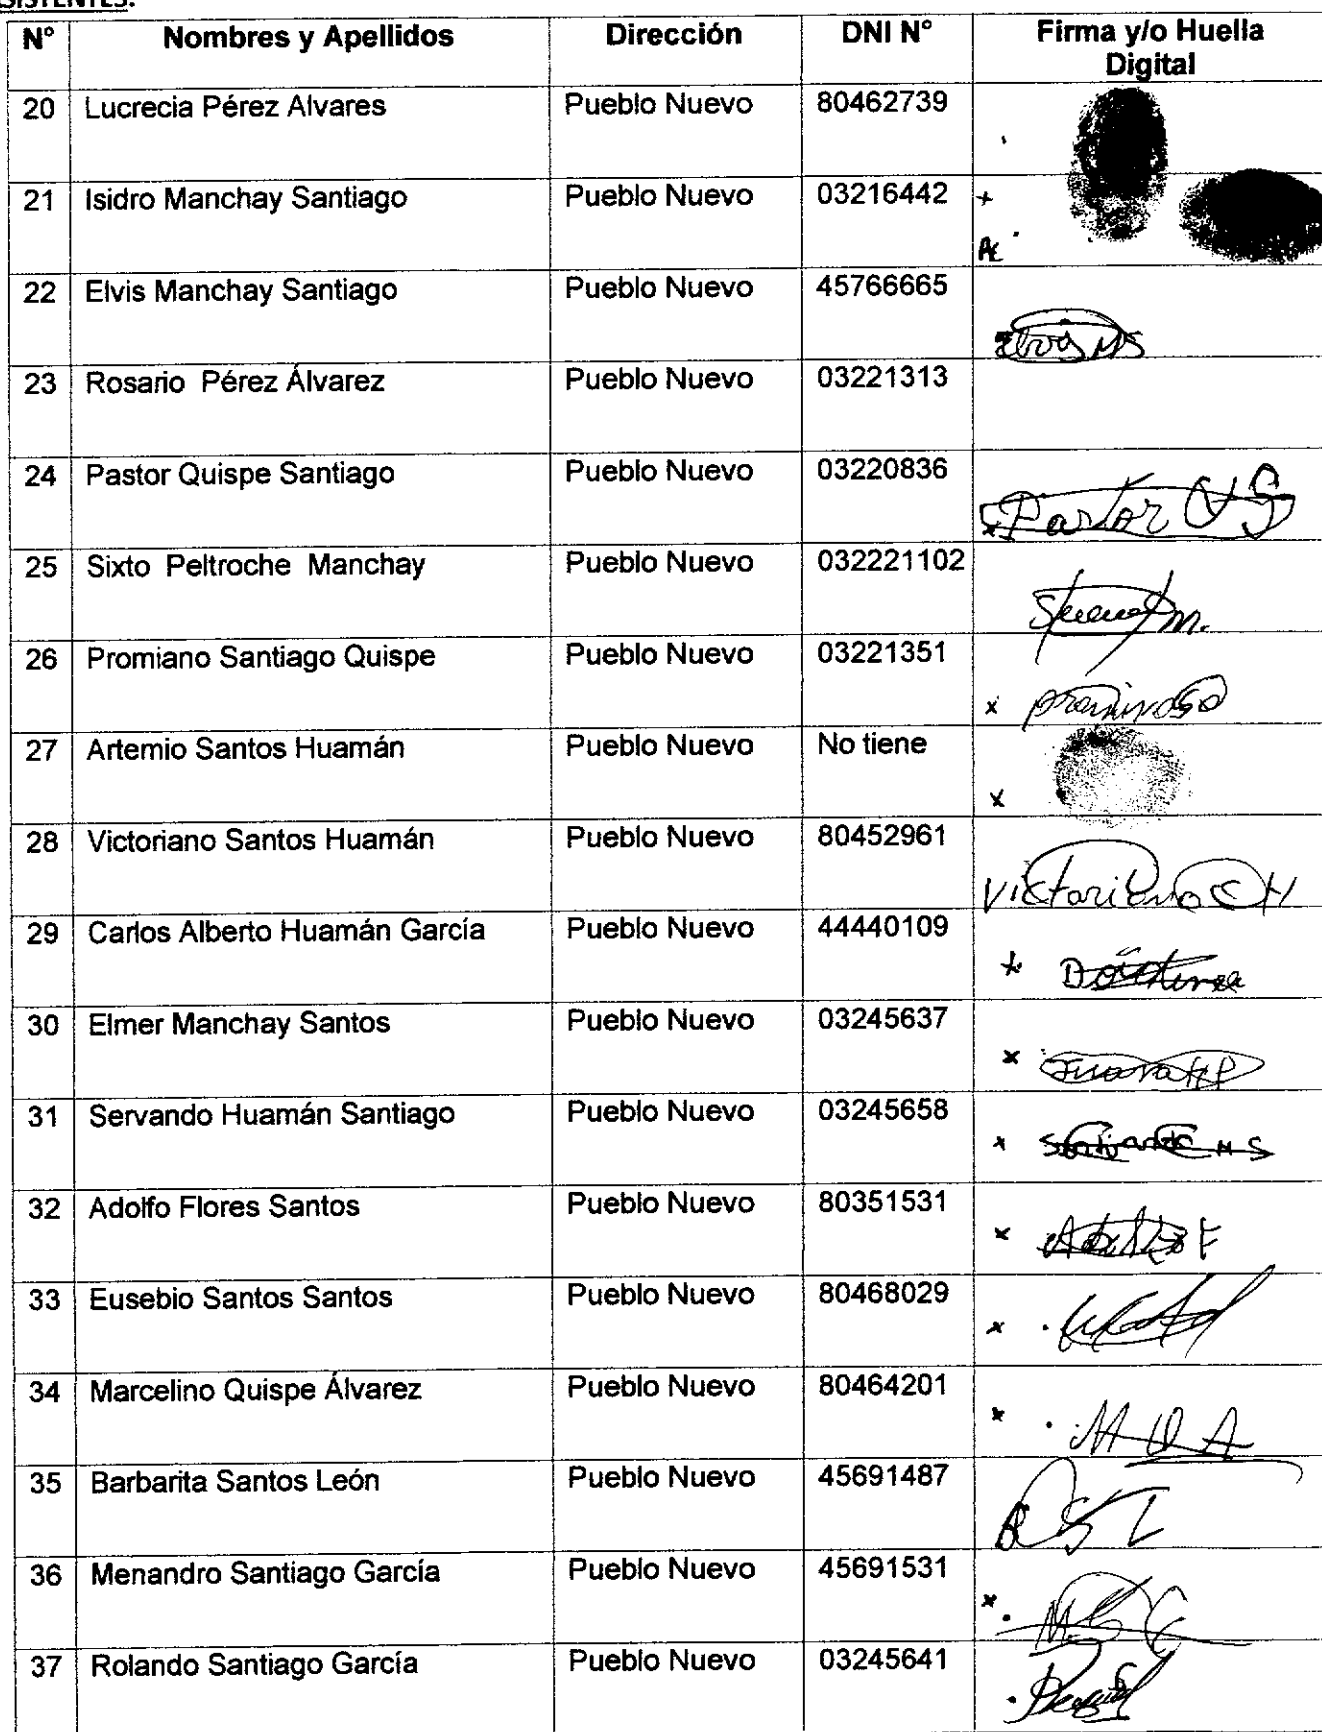 SISTENTES:
N° Nombres y Apellidos Dirección DNI N° Firma y/o Huella Digital
20 Lucrecia Pérez Alvares Pueblo Nuevo 80462739
21 Isidro Manchay Santiago Pueblo Nuevo 03216442
22 Elvis Manchay Santiago Pueblo Nuevo 45766665
23 Rosario Pérez Álvarez Pueblo Nuevo 03221313
24 Pastor Quispe Santiago Pueblo Nuevo 03220836 Pastor Q S
25 Sixto Peltroche Manchay Pueblo Nuevo 032221102
26 Promiano Santiago Quispe Pueblo Nuevo 03221351
27 Artemio Santos Huamán Pueblo Nuevo No tiene
28 Victoriano Santos Huamán Pueblo Nuevo 80452961 Victoriano S H
29 Carlos Alberto Huamán García Pueblo Nuevo 44440109
30 Elmer Manchay Santos Pueblo Nuevo 03245637
31 Servando Huamán Santiago Pueblo Nuevo 03245658
32 Adolfo Flores Santos Pueblo Nuevo 80351531
33 Eusebio Santos Santos Pueblo Nuevo 80468029
34 Marcelino Quispe Álvarez Pueblo Nuevo 80464201 M Q A
35 Barbarita Santos León Pueblo Nuevo 45691487 B S L
36 Menandro Santiago García Pueblo Nuevo 45691531 M S G
37 Rolando Santiago García Pueblo Nuevo 03245641